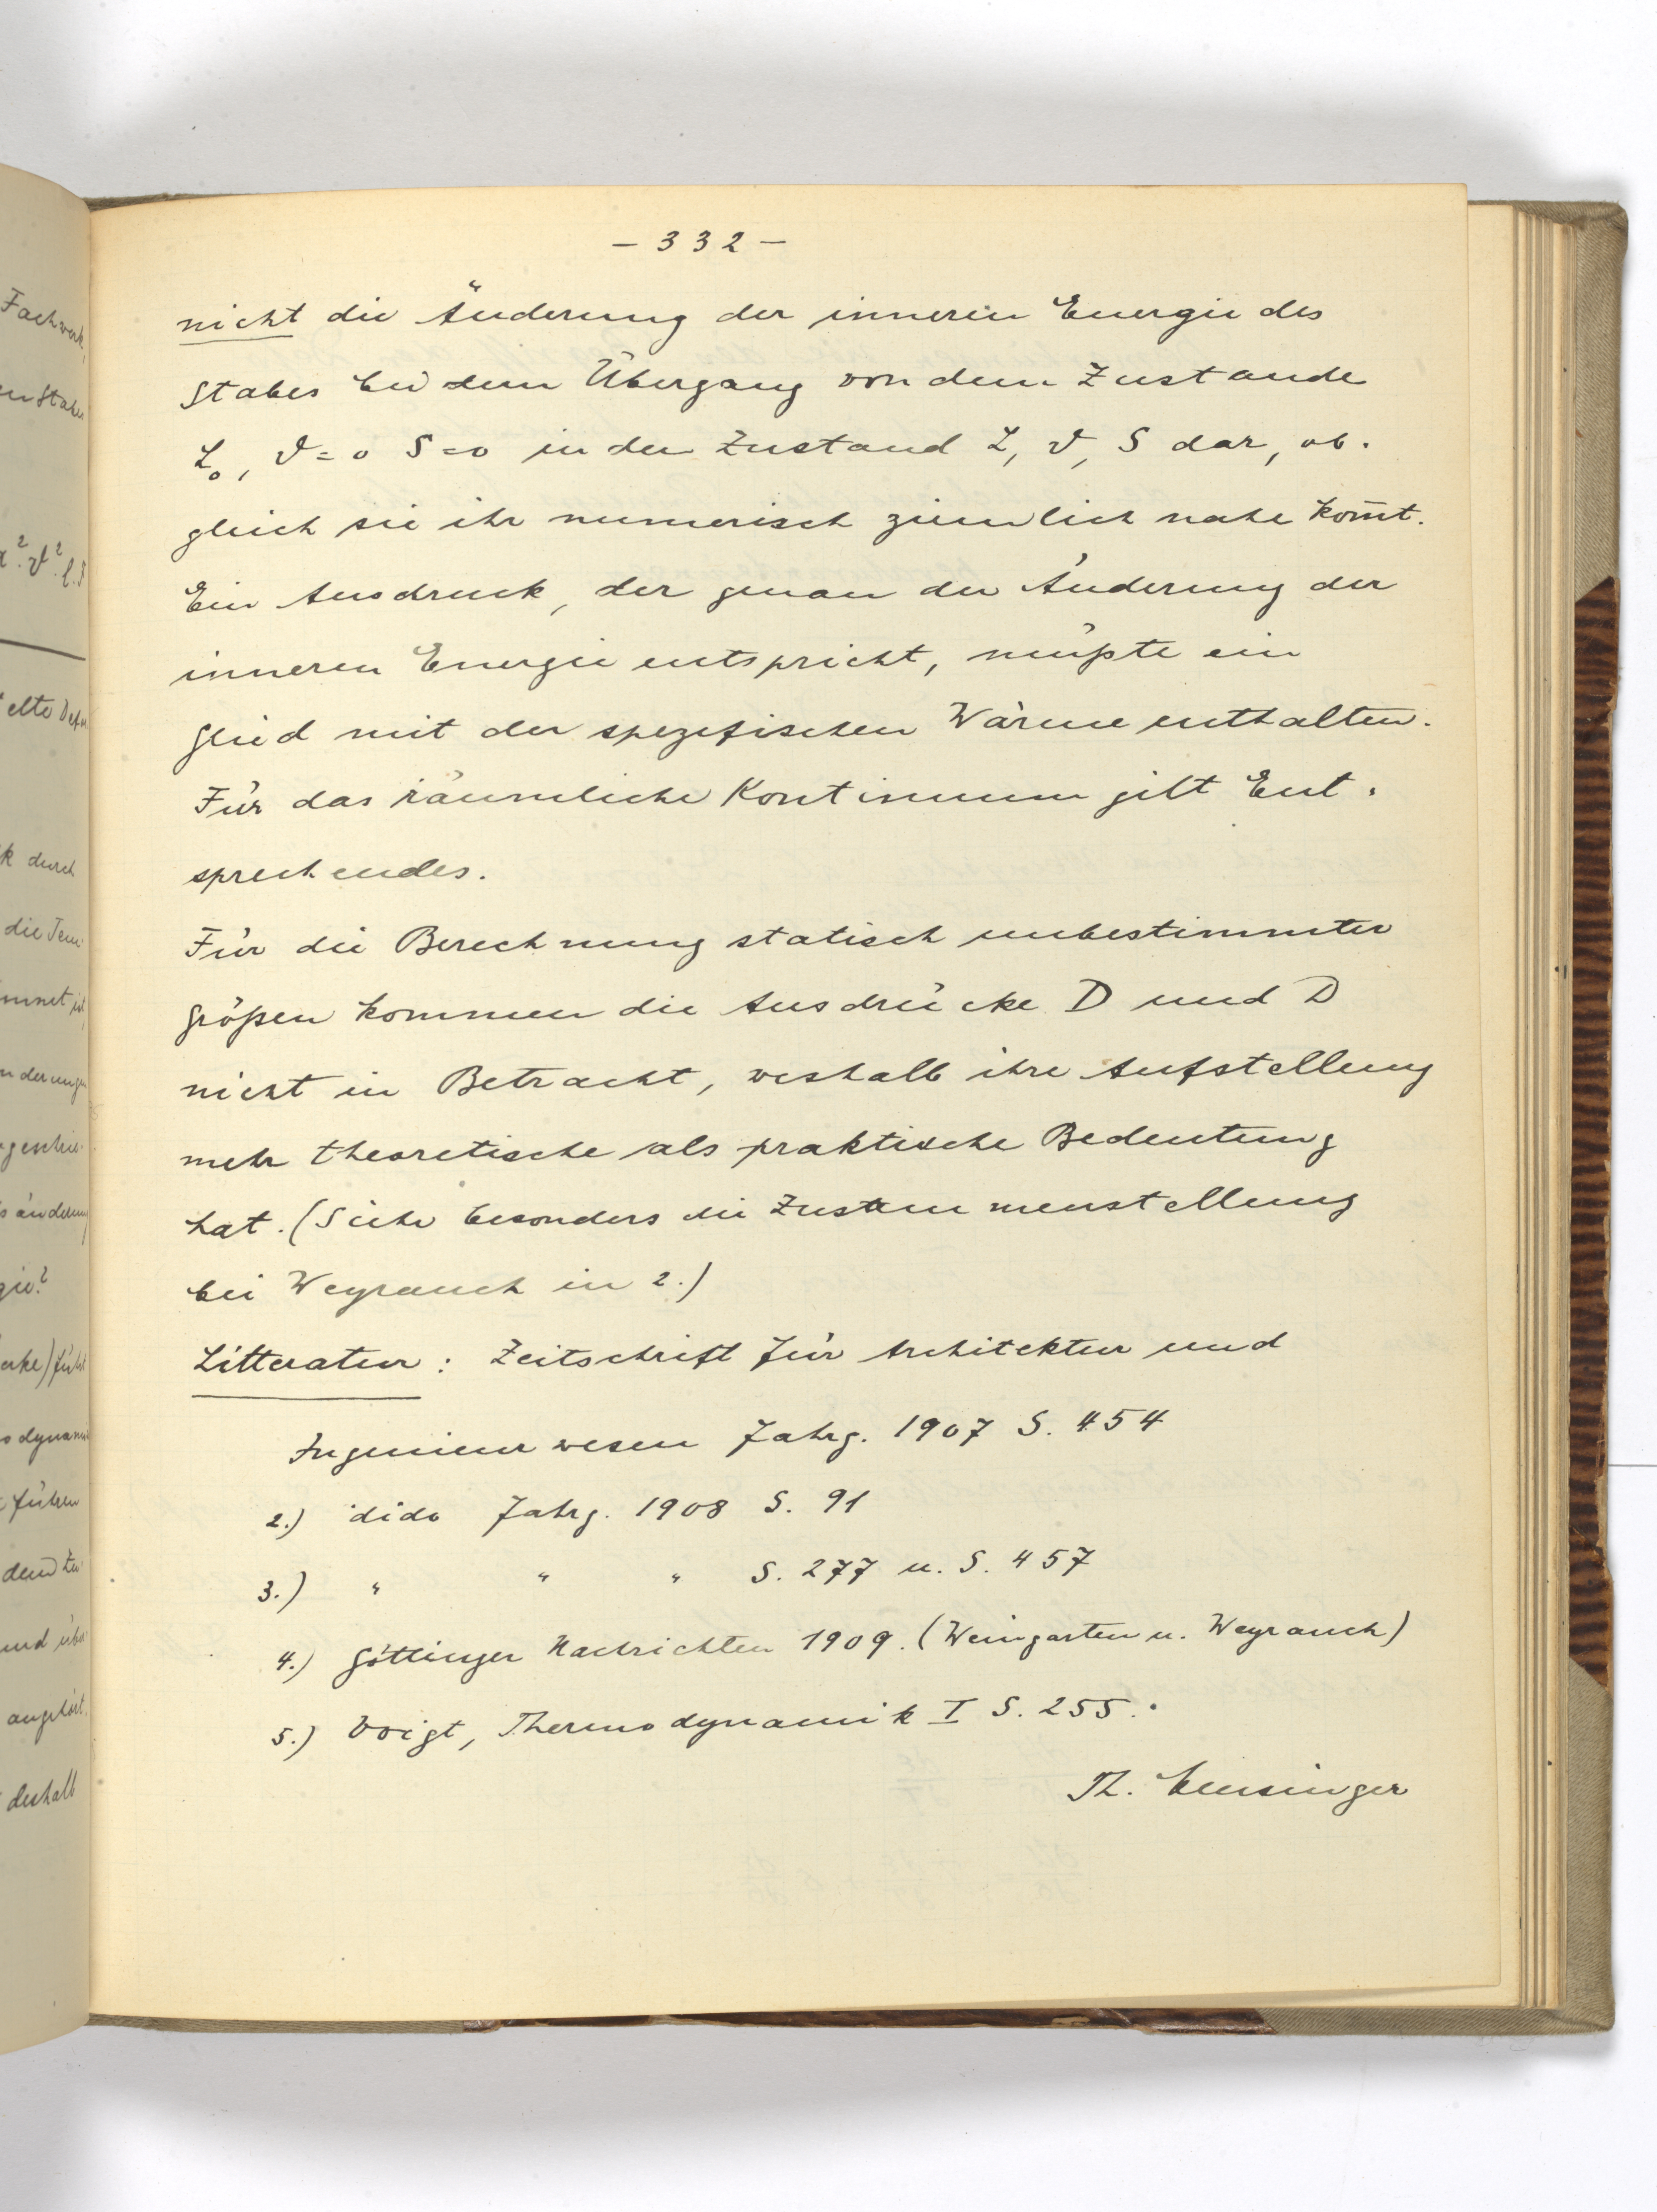 - 332 -
nicht die Änderung der inneren Energie des
Stabes bei dem Übergang von dem Zustande
L₀, ϑ=0 S=0 in den Zustand L, ϑ, S dar, ob-
gleich sie ihr numerisch ziemlich nahe kom̄t.
Ein Ausdruck, der genau der Änderung der
inneren Energie entspricht, müßte ein
Glied mit der spezifischen Wärme enthalten.
Für das räumliche Kontinuum gilt Ent-
sprechendes.
Für die Berechnung statisch unbestimmter
Größen kommen die Ausdrücke D und D
nicht in Betracht, weshalb ihre Aufstellung
mehr theoretische als praktische Bedeutung
hat. (Siehe besonders die Zusammenstellung
bei Weyrauch in 2.)
Litteratur: Zeitschrift für Architektur und
Ingenieurwesen Jahrg. 1907 S. 454
2.) dido Jahrg. 1908 S. 91
3.) " " " S. 277 u. S. 457
4.) Göttinger Nachrichten 1909. (Weingarten u. Weyrauch)
5.) Voigt, Thermodynamik I S. 255.
Th.